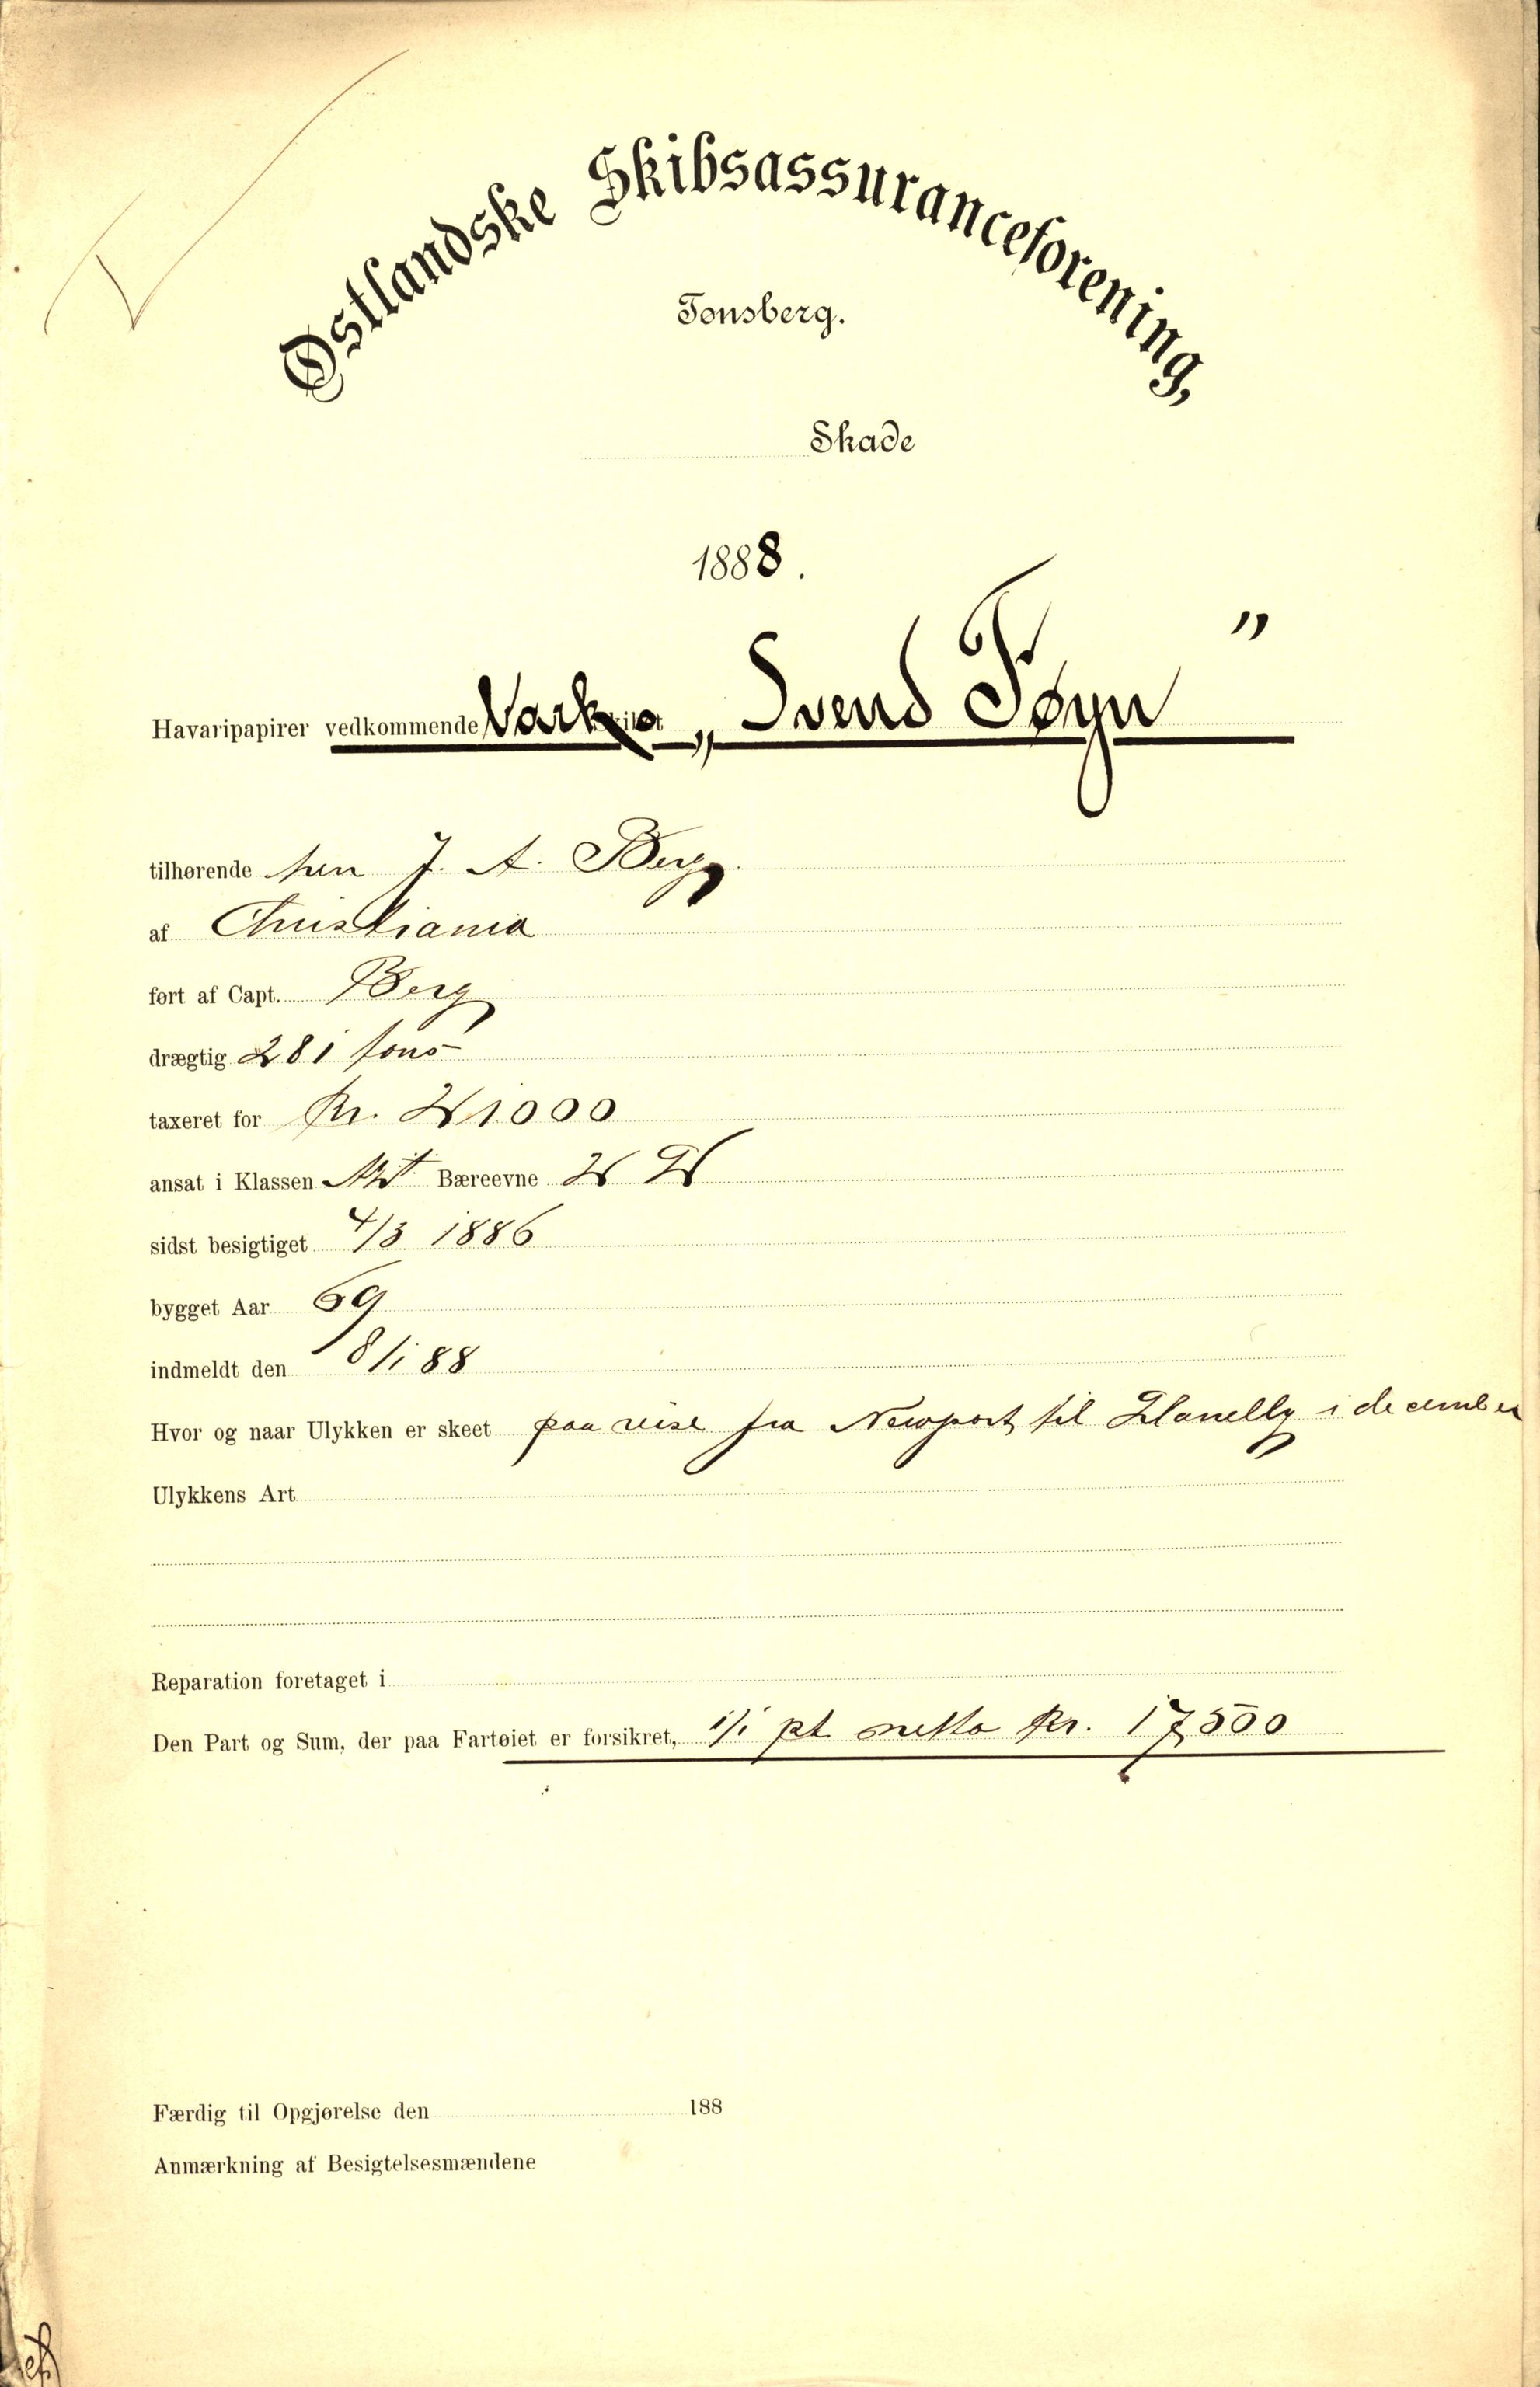 Østlandske Skibsassuranceforening,
Tønsberg.
Skade
1888.
Havaripapirer vedkommende „Svend Føyn"
tilhørende herr J. A. Berg.
af Christiania
ført af Capt. Berg
drægtig 281 tons
taxeret for Kr. 21000
ansat i Klassen Bæreevne
sidst besigtiget 4/3 1886
bygget Aar 69
indmeldt den 18/1 88
Hvor og naar Ulykken er skeet paa reise fra Newport til Llanelly i december
Ulykkens Art
Reparation foretaget i
Den Part og Sum, der paa Fartøiet er forsikret, 1/1 pt. netto Kr. 17500
Færdig til Opgjørelse den 188
Anmærkning af Besigtelsesmændene